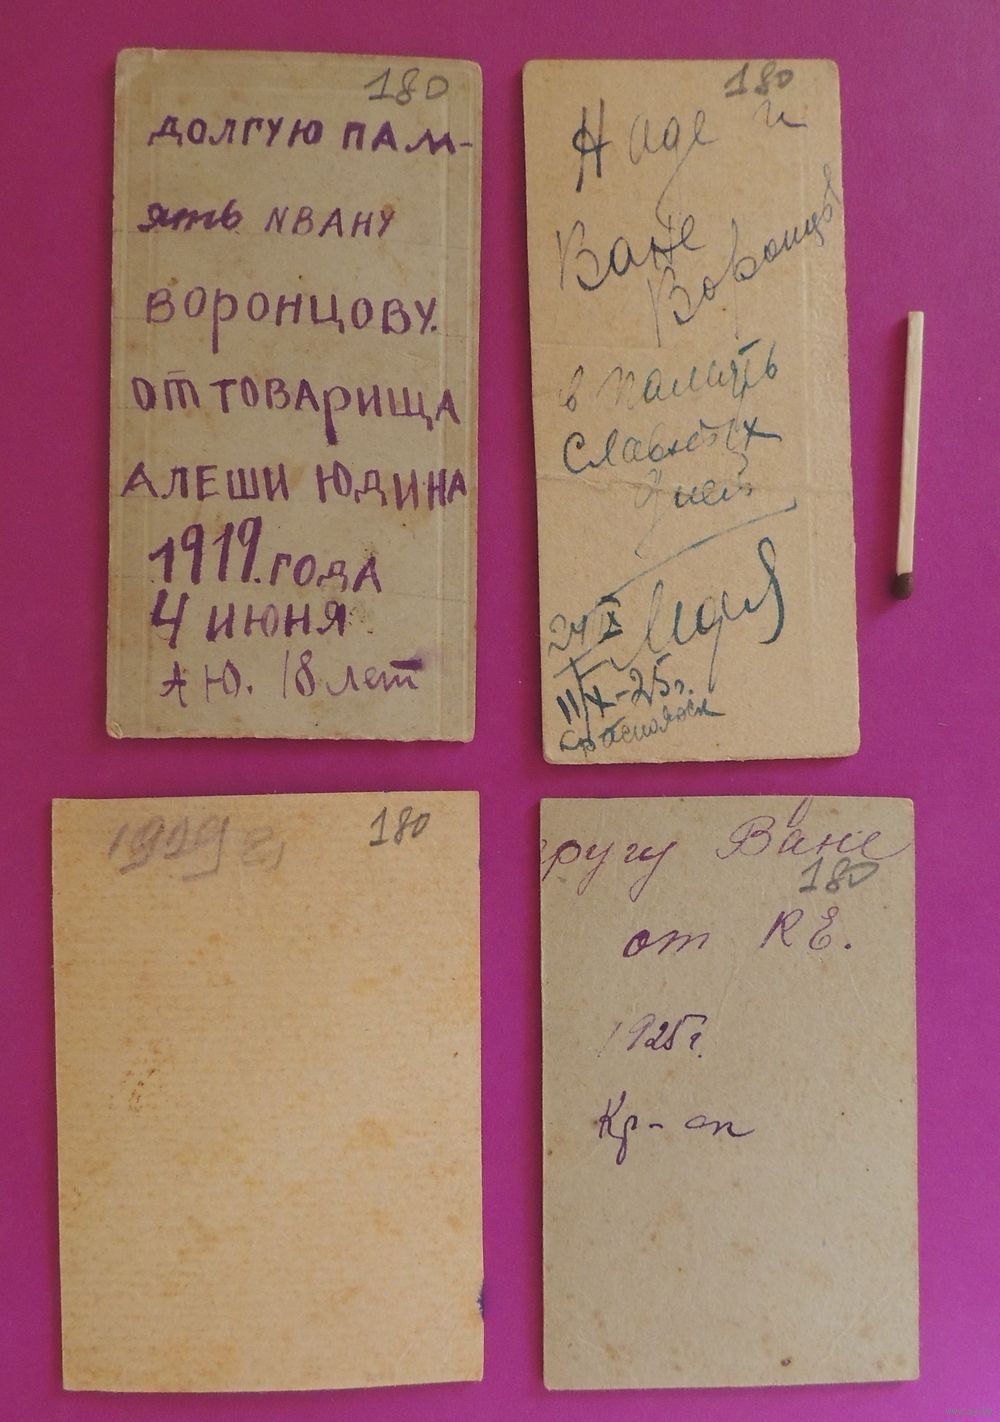 180
ДОЛГУЮ ПАМ-
ять ИВАНУ
ВОРОНЦОВУ.
ОТ ТОВАРИЩА
АЛЕШИ ЮДИНА
1919. ГОДА
4 ИЮНЯ
А Ю. 18 лет
180
Наде и
Ване
Воронцы
в память
Славных
дней
Лидия
24 X
11/X-25г.
Красноярск
1929 г.
180
другу Ване
180
от КЕ.
1925г.
Кр-ск